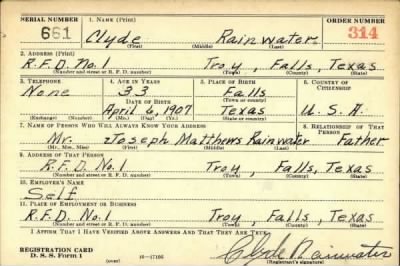 SERIAL NUMBER 1. NAME (Print) ORDER NUMBER
661 Clyde Rainwater 314
(First) (Middle) (Last)
2. ADDRESS (Print)
R.F.D. No. 1 Troy, Falls, Texas
(Number and street or R. F. D. number) (Town) (County) (State)
3. TELEPHONE 4. AGE IN YEARS 5. PLACE OF BIRTH 6. COUNTRY OF CITIZENSHIP
None 33 Falls
DATE OF BIRTH (Town or county)
April 6, 1907 Texas U.S.A.
(Exchange) (Number) (Mo.) (Day) (Yr.) (State or country)
7. NAME OF PERSON WHO WILL ALWAYS KNOW YOUR ADDRESS 8. RELATIONSHIP OF THAT PERSON
Mr. Joseph Matthews Rainwater Father
(Mr., Mrs., Miss) (First) (Middle) (Last)
9. ADDRESS OF THAT PERSON
R.F.D. No. 1 Troy, Falls, Texas
(Number and street or R. F. D. number) (Town) (County) (State)
10. EMPLOYER'S NAME
Self
11. PLACE OF EMPLOYMENT OR BUSINESS
R.F.D. No. 1 Troy, Falls, Texas
(Number and street or R. F. D. number) (Town) (County) (State)
I AFFIRM THAT I HAVE VERIFIED ABOVE ANSWERS AND THAT THEY ARE TRUE.
REGISTRATION CARD Clyde Rainwater
D. S. S. Form 1 (over) 16-17105 (Registrant's signature)